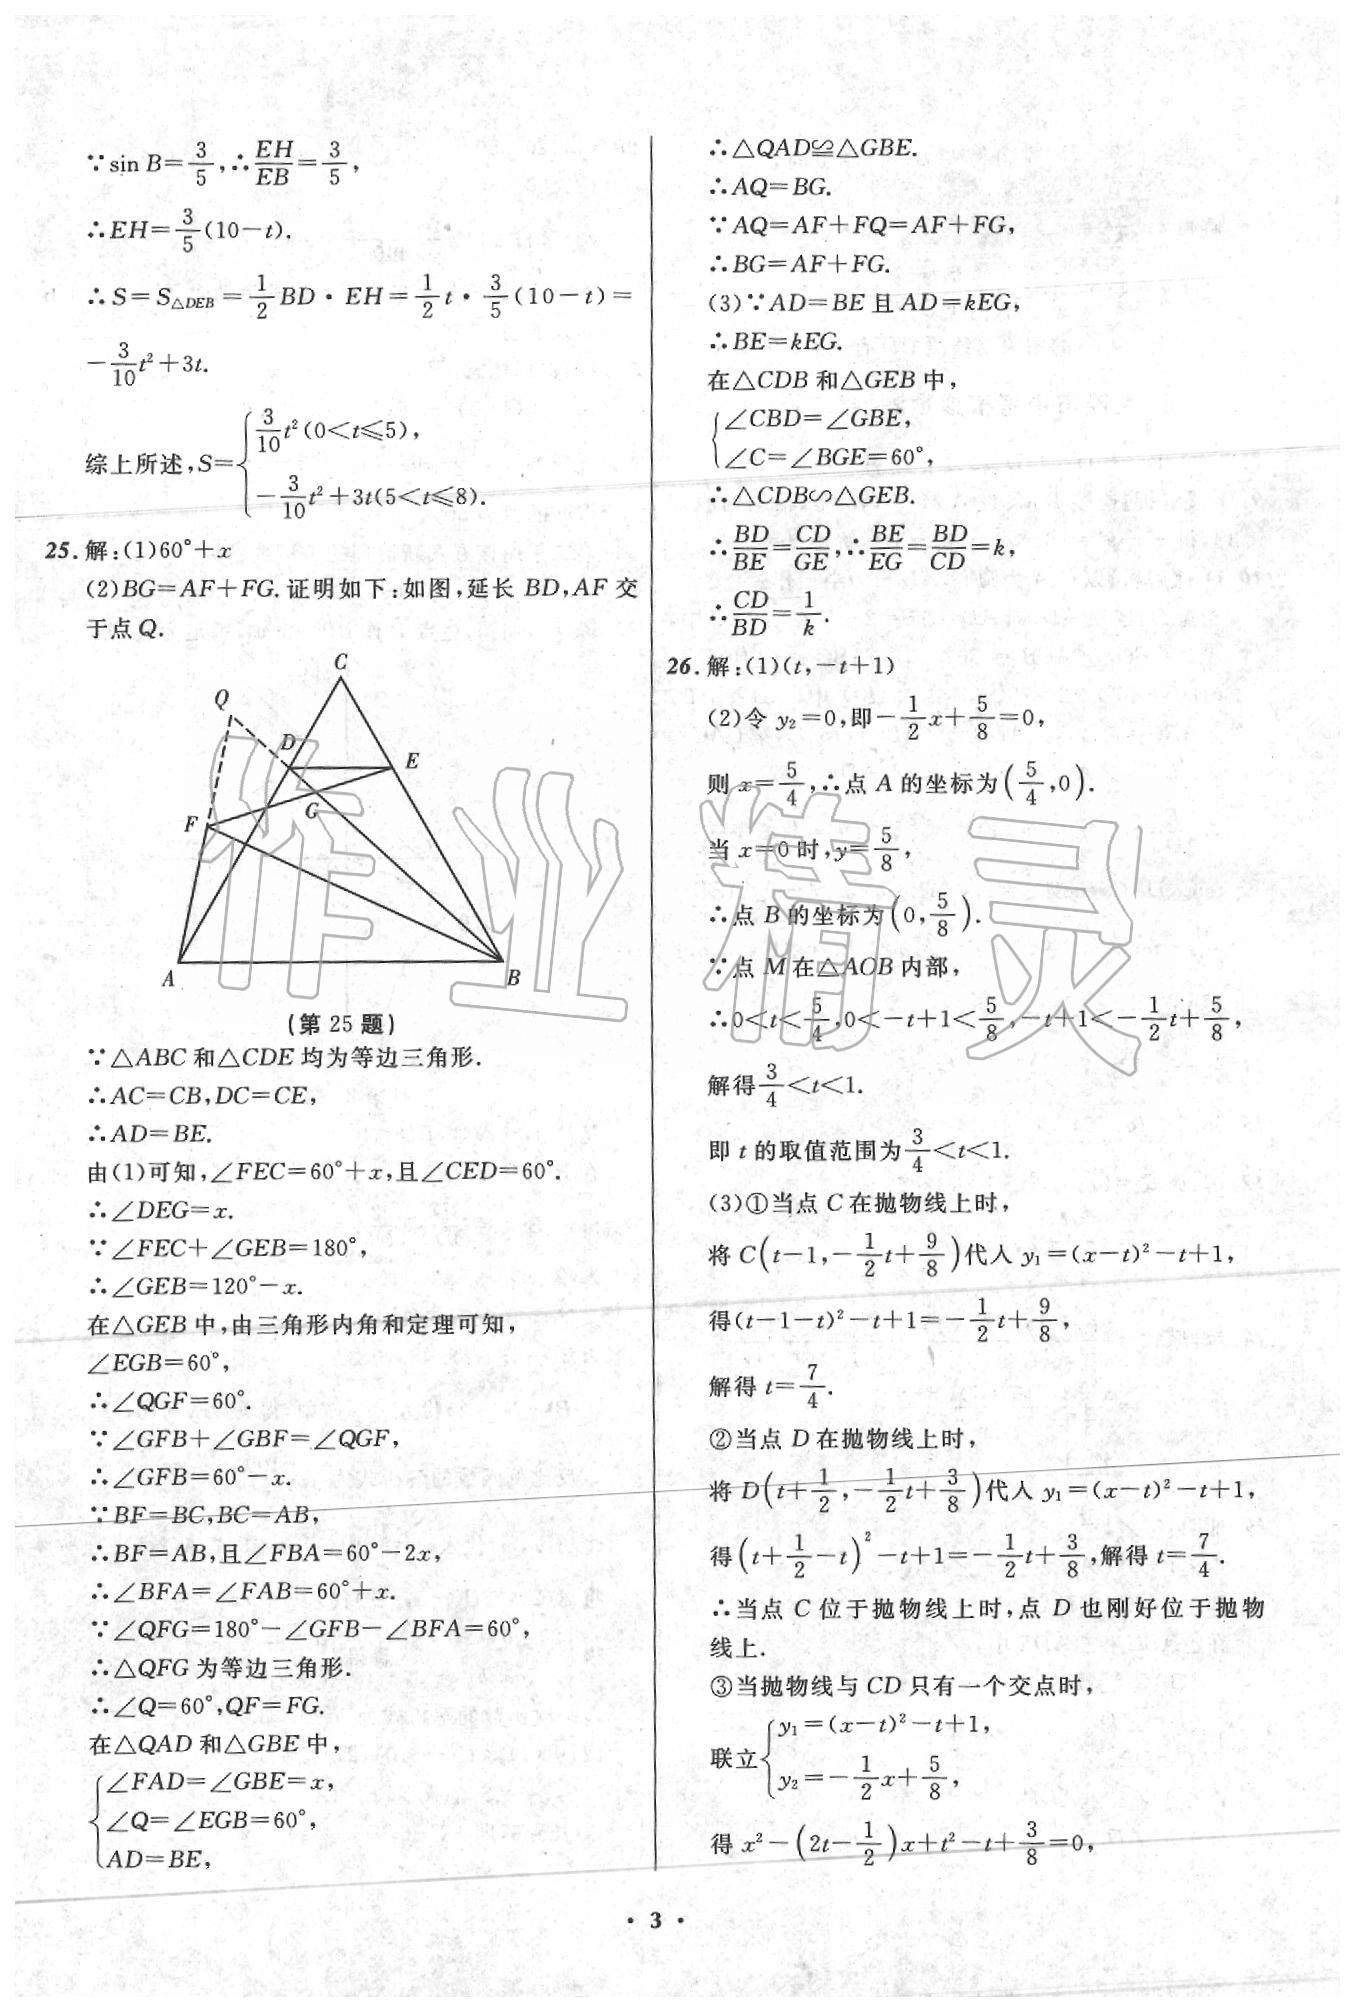 ∵sin B=3/5,∴EH/EB=3/5,
∴EH=3/5(10-t).
∴S=S△DEB=1/2BD·EH=1/2t·3/5(10-t)=
-3/10t²+3t.
综上所述,S={3/10t²(0<t⩽5),
-3/10t²+3t(5<t⩽8).
25.解:(1)60°+x
(2)BG=AF+FG.证明如下:如图,延长 BD,AF 交
于点Q.
C
Q
D
E
G
F
A
B
(第 25 题)
∵△ABC 和△CDE 均为等边三角形.
∴AC=CB,DC=CE,
∴AD=BE.
由(1)可知,∠FEC=60°+x,且∠CED=60°.
∴∠DEG=x.
∵∠FEC+∠GEB=180°,
∴∠GEB=120°-x.
在△GEB 中,由三角形内角和定理可知,
∠EGB=60°,
∴∠QGF=60°.
∵∠GFB+∠GBF=∠QGF,
∴∠GFB=60°-x.
∵BF=BC,BC=AB,
∴BF=AB,且∠FBA=60°-2x,
∴∠BFA=∠FAB=60°+x.
∵∠QFG=180°-∠GFB-∠BFA=60°,
∴△QFG 为等边三角形.
∴∠Q=60°,QF=FG.
在△QAD 和△GBE 中,
{∠FAD=∠GBE=x,
∠Q=∠EGB=60°,
AD=BE,
∴△QAD≌△GBE.
∴AQ=BG.
∵AQ=AF+FQ=AF+FG,
∴BG=AF+FG.
(3)∵AD=BE 且 AD=kEG,
∴BE=kEG.
在△CDB 和△GEB 中,
{∠CBD=∠GBE,
∠C=∠BGE=60°,
∴△CDB∽△GEB.
∴BD/BE=CD/GE,∴BE/EG=BD/CD=k,
∴CD/BD=1/k.
26.解:(1)(t,-t+1)
(2)令 y₂=0,即-1/2x+5/8=0,
则 x=5/4,∴点 A 的坐标为(5/4,0).
当 x=0 时,y=5/8,
∴点 B 的坐标为(0,5/8).
∵点 M 在△AOB 内部,
∴0<t<5/4,0<-t+1<5/8,-t+1<-1/2t+5/8,
解得3/4<t<1.
即 t 的取值范围为3/4<t<1.
(3)①当点 C 在抛物线上时,
将 C(t-1,-1/2t+9/8)代入 y₁=(x-t)²-t+1,
得(t-1-t)²-t+1=-1/2t+9/8,
解得 t=7/4.
②当点 D 在抛物线上时,
将 D(t+1/2,-1/2t+3/8)代入 y₁=(x-t)²-t+1,
得(t+1/2-t)²-t+1=-1/2t+3/8,解得 t=7/4.
∴当点 C 位于抛物线上时,点 D 也刚好位于抛物
线上.
③当抛物线与 CD 只有一个交点时,
联立{y₁=(x-t)²-t+1,
y₂=-1/2x+5/8,
得 x²-(2t-1/2)x+t²-t+3/8=0,
作业精灵
· 3 ·